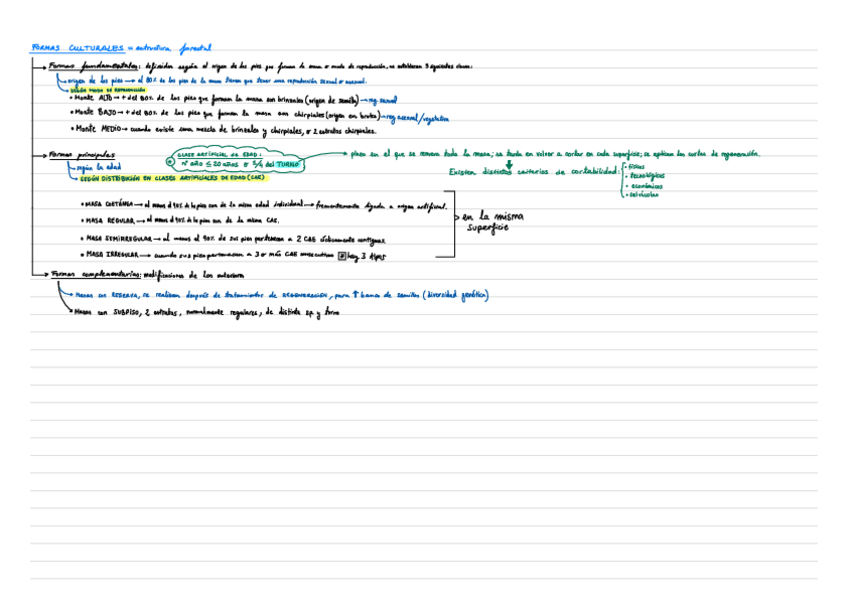 FORMAS CULTURALES = estructura forestal
Formas fundamentales: definidas según el origen de los pies que forman la masa o modo de reproducción, se establecen 3 siguientes clases:
origen de los pies → el 80% de los pies de la masa tienen que tener una reproducción sexual o asexual.
SEGÚN MODO DE REPRODUCCIÓN
• Monte ALTO → + del 80% de los pies que forman la masa son brinzales (origen de semilla) → reg. sexual
• Monte BAJO → + del 80% de los pies que forman la masa son chirpiales (origen en brotes) → reg. asexual/vegetativa
• Monte MEDIO → cuando existe una mezcla de brinzales y chirpiales, o 2 estratos chirpiales.
Formas principales
según la edad
SEGÚN DISTRIBUCIÓN EN CLASES ARTIFICIALES DE EDAD (CAE)
CLASE ARTIFICIAL DE EDAD:
Nº año ≤ 20 años o 1/4 del TURNO
→ plazo en el que se renueva toda la masa; se tarda en volver a cortar en cada superficie; se aplican las cortas de regeneración.
Existen distintos criterios de cortabilidad:
• físicos
• tecnológicos
• económicos
• selvícolas
• MASA COETÁNEA → al menos el 90% de los pies son de la misma edad individual → frecuentemente ligada a origen artificial.
• MASA REGULAR → al menos el 90% de los pies son de la misma CAE.
• MASA SEMIRREGULAR → al menos el 90% de sus pies pertenecen a 2 CAE cíclicamente contiguas
• MASA IRREGULAR → cuando sus pies pertenecen a 3 o más CAE hay 3 tipos
en la misma
superficie
Formas complementarias: modificaciones de las anteriores
Masas con RESERVA, se realizan después de tratamientos de REGENERACIÓN, para ↑ banco de semillas (diversidad genética)
Masas con SUBPISO, 2 estratos, normalmente regulares, de distinta sp. y